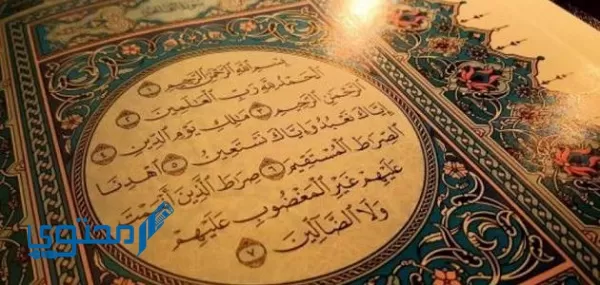 بِسْمِ اللَّهِ الرَّحْمَٰنِ الرَّحِيمِ ١
الْحَمْدُ لِلَّهِ رَبِّ الْعَالَمِينَ ٢
الرَّحْمَٰنِ الرَّحِيمِ ٣ مَالِكِ يَوْمِ الدِّينِ ٤
إِيَّاكَ نَعْبُدُ وَإِيَّاكَ نَسْتَعِينُ ٥ اهْدِنَا
الصِّرَاطَ الْمُسْتَقِيمَ ٦ صِرَاطَ الَّذِينَ أَنْعَمْتَ
عَلَيْهِمْ غَيْرِ الْمَغْضُوبِ عَلَيْهِمْ
وَلَا الضَّالِّينَ ٧
محتوى